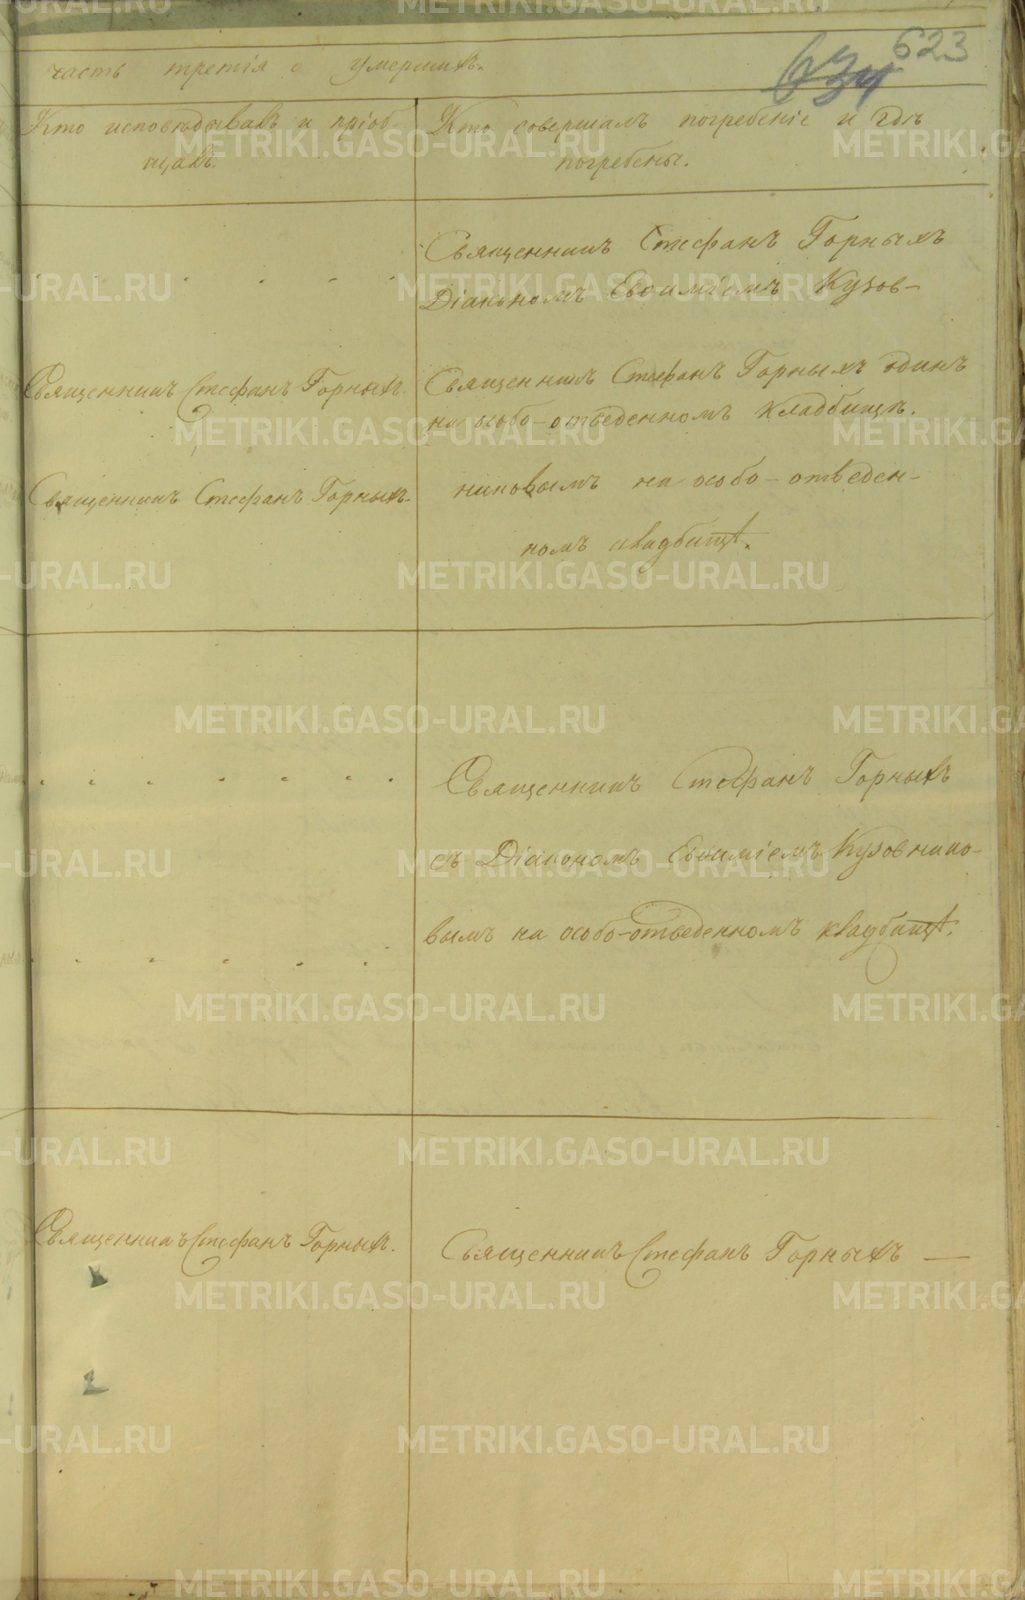 623
34
часть третія о умершихъ.
Кто исповѣдывалъ и пріоб-
щалъ.
Кто совершалъ погребеніе и гдѣ
погребены.
Священникъ Стефанъ Горныхъ
Діакономъ Евѳиміемъ Кузов-
Священникъ Стефанъ Горныхъ.
Священникъ Стефанъ Горныхъ одинъ
на особо-отведенномъ кладбищѣ.
Священникъ Стефанъ Горныхъ.
никовымъ на особо-отведен-
номъ кладбищѣ.
Священникъ Стефанъ Горныхъ
съ Діакономъ Евѳиміемъ Кузовнико-
вымъ на особо-отведенномъ кладбищѣ.
Священникъ Стефанъ Горныхъ.
Священникъ Стефанъ Горныхъ —
METRIKI.GASO-URAL.RU